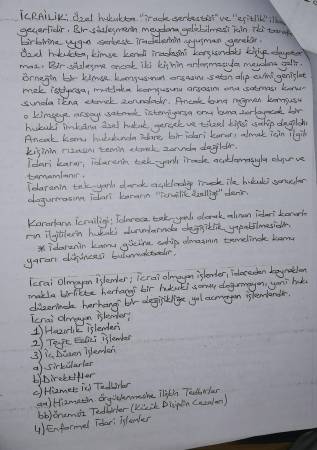 İCRAİLİK: Özel hukukta "irade serbestisi" ve "eşitlik" ilkesi
geçerlidir. Bir sözleşmenin meydana gelebilmesi için iki tarafın
birbirine uygun serbest iradelerinin uyuşması gerekir.
Özel hukukta, kimse kendi iradesini karşısındaki kişiye dayata-
maz. Bir sözleşme ancak iki kişinin anlaşmasıyla meydana gelir.
Örneğin bir kimse komşusunun arsasını satın alıp evini genişlet-
mek istiyorsa, mutlaka komşusunu arsasını ona satması konu-
sunda ikna etmek zorundadır. Ancak buna rağmen komşusu
o kimseye arsayı satmak istemiyorsa onu buna zorlayacak bir
hukuki imkana özel hukuk gerçek ve tüzel kişisi sahip değildir.
Ancak kamu hukukunda idare bir idari karar almak için ilgili
kişinin rızasını temin etmek zorunda değildir.
İdari karar, idarenin tek yanlı irade açıklamasıyla oluşur ve
tamamlanır.
İdarenin tek yanlı olarak açıkladığı irade ile hukuki sonuçlar
doğurmasına idari kararın "icrailik özelliği" denir.
Kararların İcrailiği; idarece tek yanlı olarak alınan idari kararla-
rın ilgililerin hukuki durumlarında değişiklik yapabilmesidir.
* idarenin kamu gücüne sahip olmasının temelinde kamu
yararı düşüncesi bulunmaktadır.
İcrai Olmayan İşlemler; icrai olmayan işlemler, idareden kaynaklan-
makla birlikte herhangi bir hukuki sonuç doğurmayan, yani hukuk
düzeninde herhangi bir değişikliğe yol açmayan işlemlerdir.
İcrai Olmayan İşlemler;
1) Hazırlık İşlemleri
2) Teyit Edici İşlemler
3) İç Düzen İşlemleri
a) Sirkülerler
b) Direktifler
c) Hizmet İçi Tedbirler
aa) Hizmetin Örgütlenmesine İlişkin Tedbirler
bb) Önemsiz Tedbirler (Küçük Disiplin Cezaları)
4) Enformel İdari İşlemler